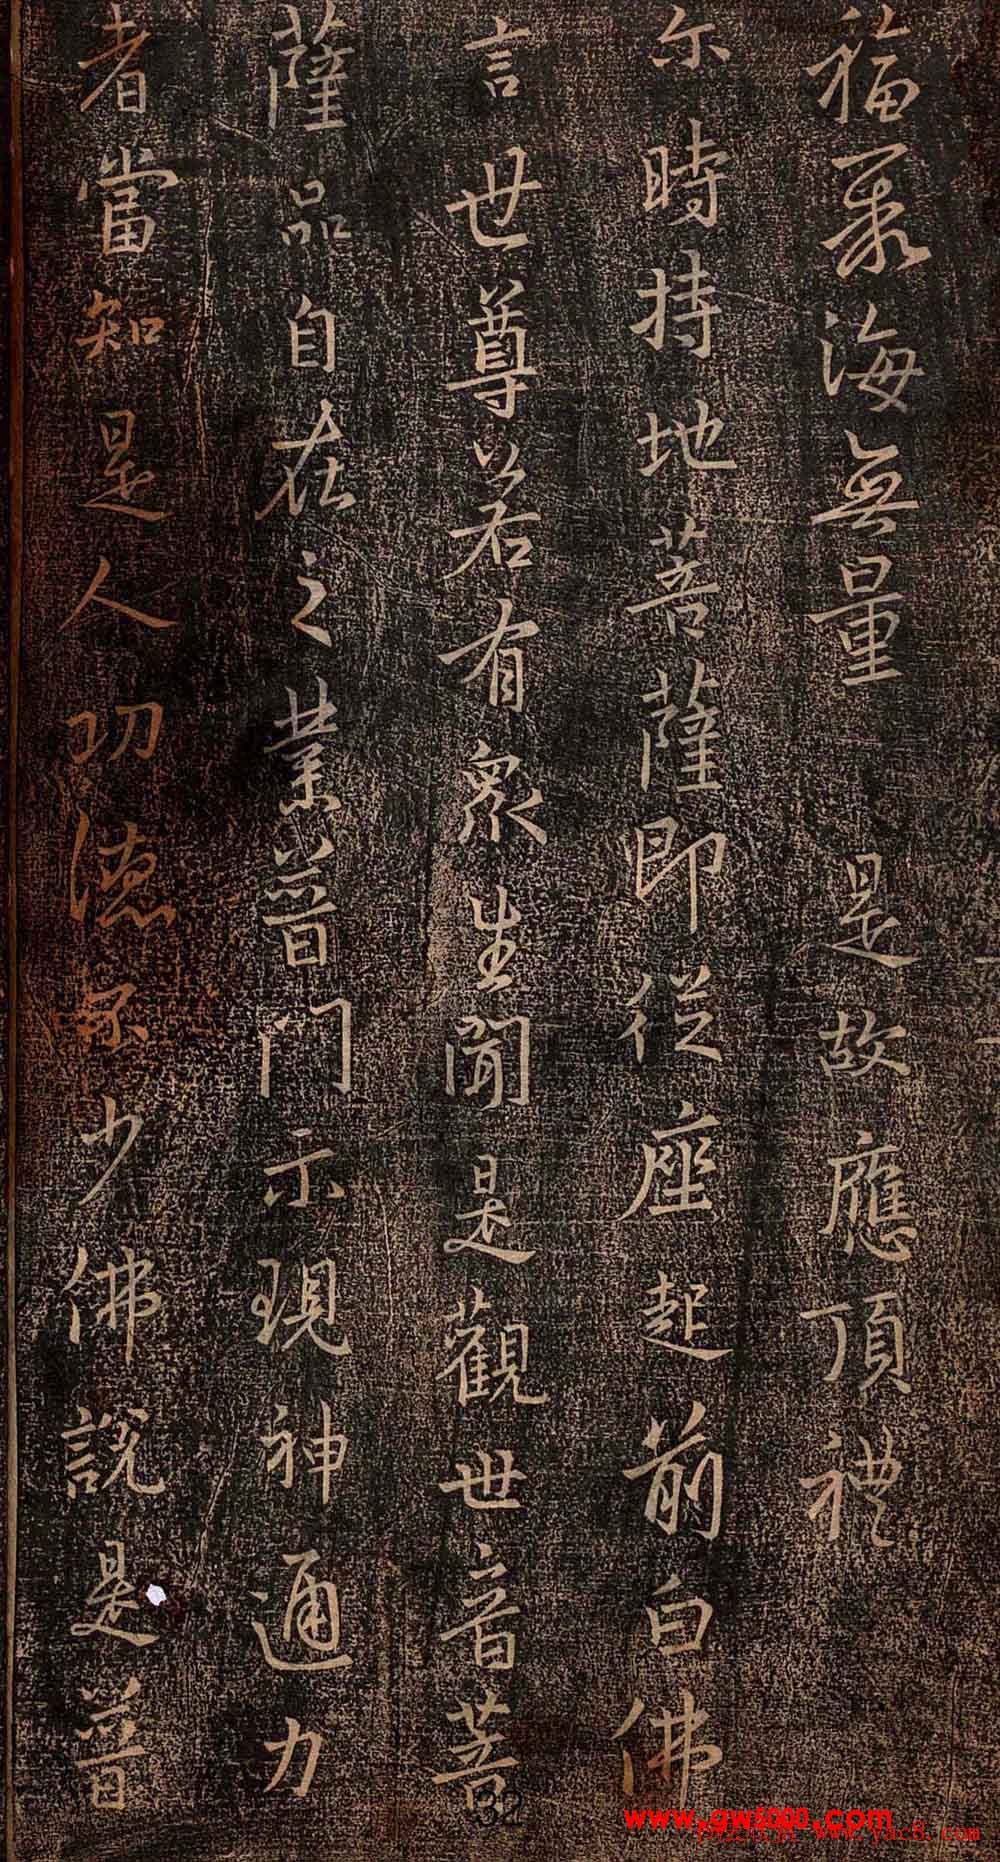 福聚海無量 是故應頂禮
尔時持地菩薩即從座起前白佛
言世尊若有衆生聞是觀世音菩
薩品自在之業普門示現神通力
者當知是人功德不少佛説是普
32
www.gw5000.com
www.yac8.com